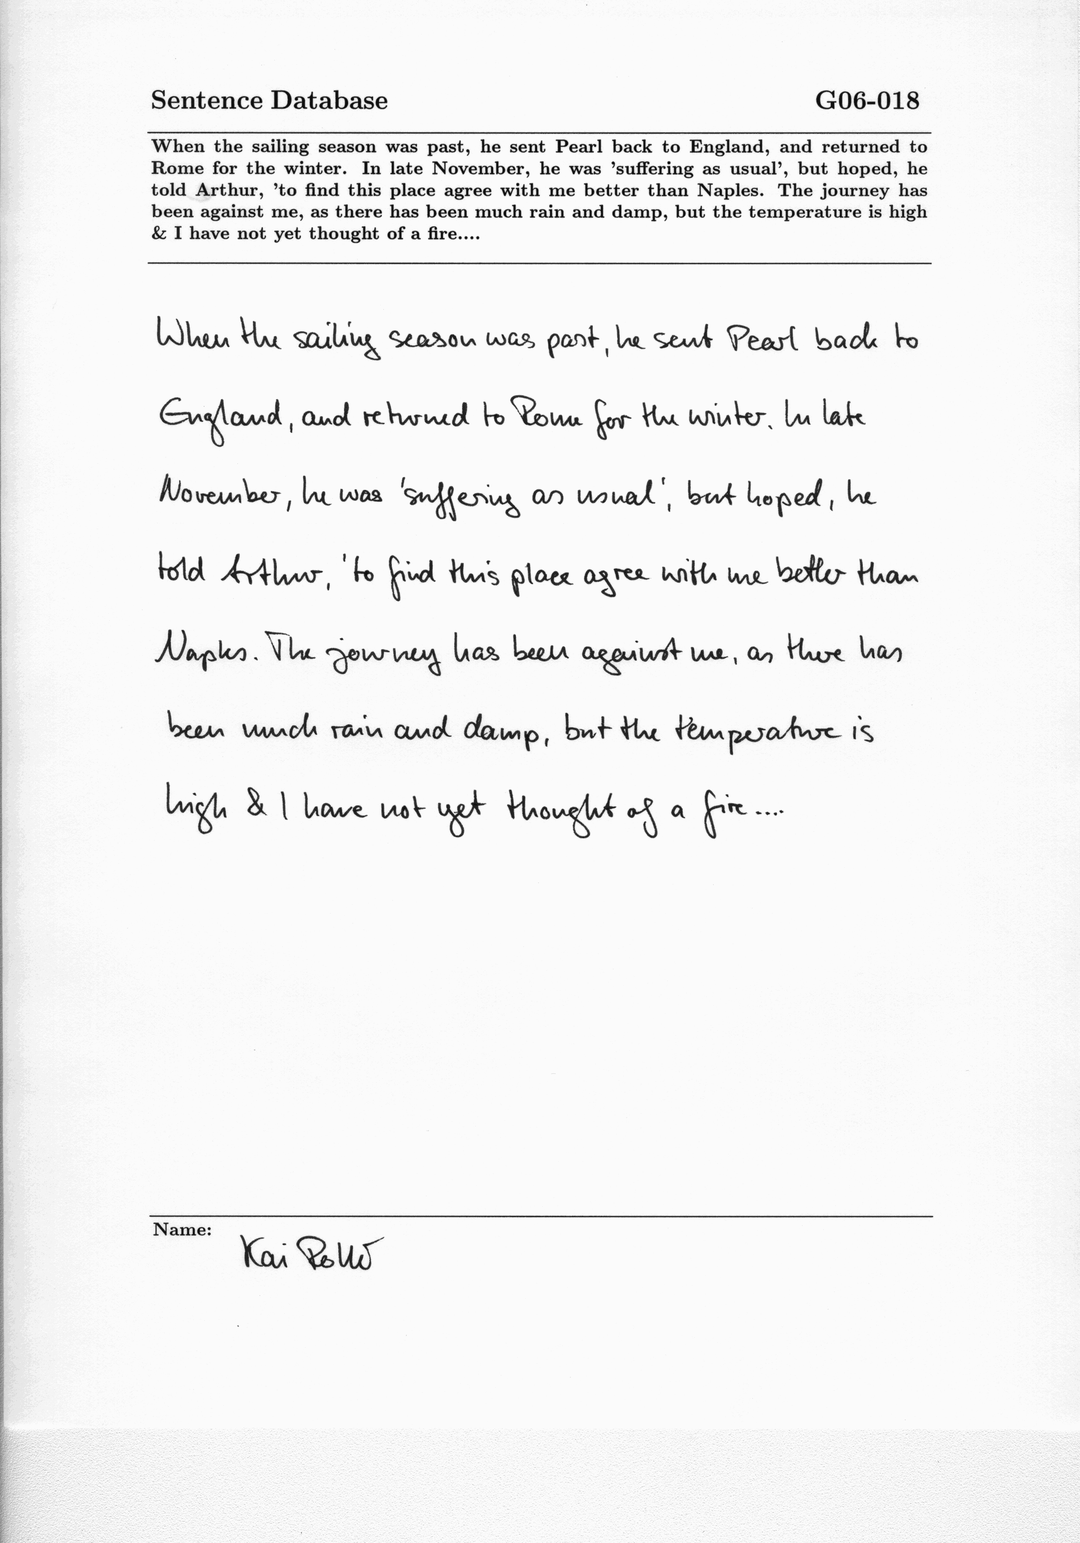 Sentence Database G06-018
When the sailing season was past, he sent Pearl back to England, and returned to
Rome for the winter. In late November, he was 'suffering as usual', but hoped, he
told Arthur, 'to find this place agree with me better than Naples. The journey has
been against me, as there has been much rain and damp, but the temperature is high
& I have not yet thought of a fire....
When the sailing season was past, he sent Pearl back to
England, and returned to Rome for the winter. In late
November, he was 'suffering as usual', but hoped, he
told Arthur, 'to find this place agree with me better than
Naples. The journey has been against me, as there has
been much rain and damp, but the temperature is
high & I have not yet thought of a fire....
Name:
Kai